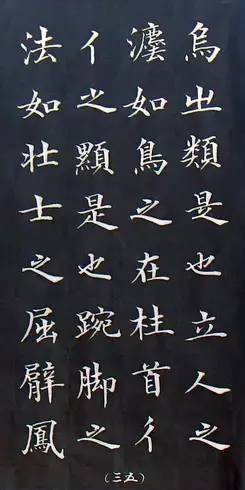 烏出類是也立人之
灋如鳥之在柱首彳
亻之顯是也踠脚之
法如壮士之屈臂鳳
（三五）